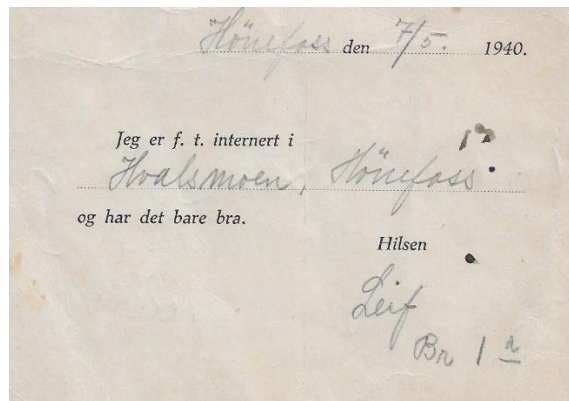 Hönefoss den 7/5. 1940.
Jeg er f. t. internert i
Hvalsmoen, Hönefoss
og har det bare bra.
Hilsen
Leif
Br 1